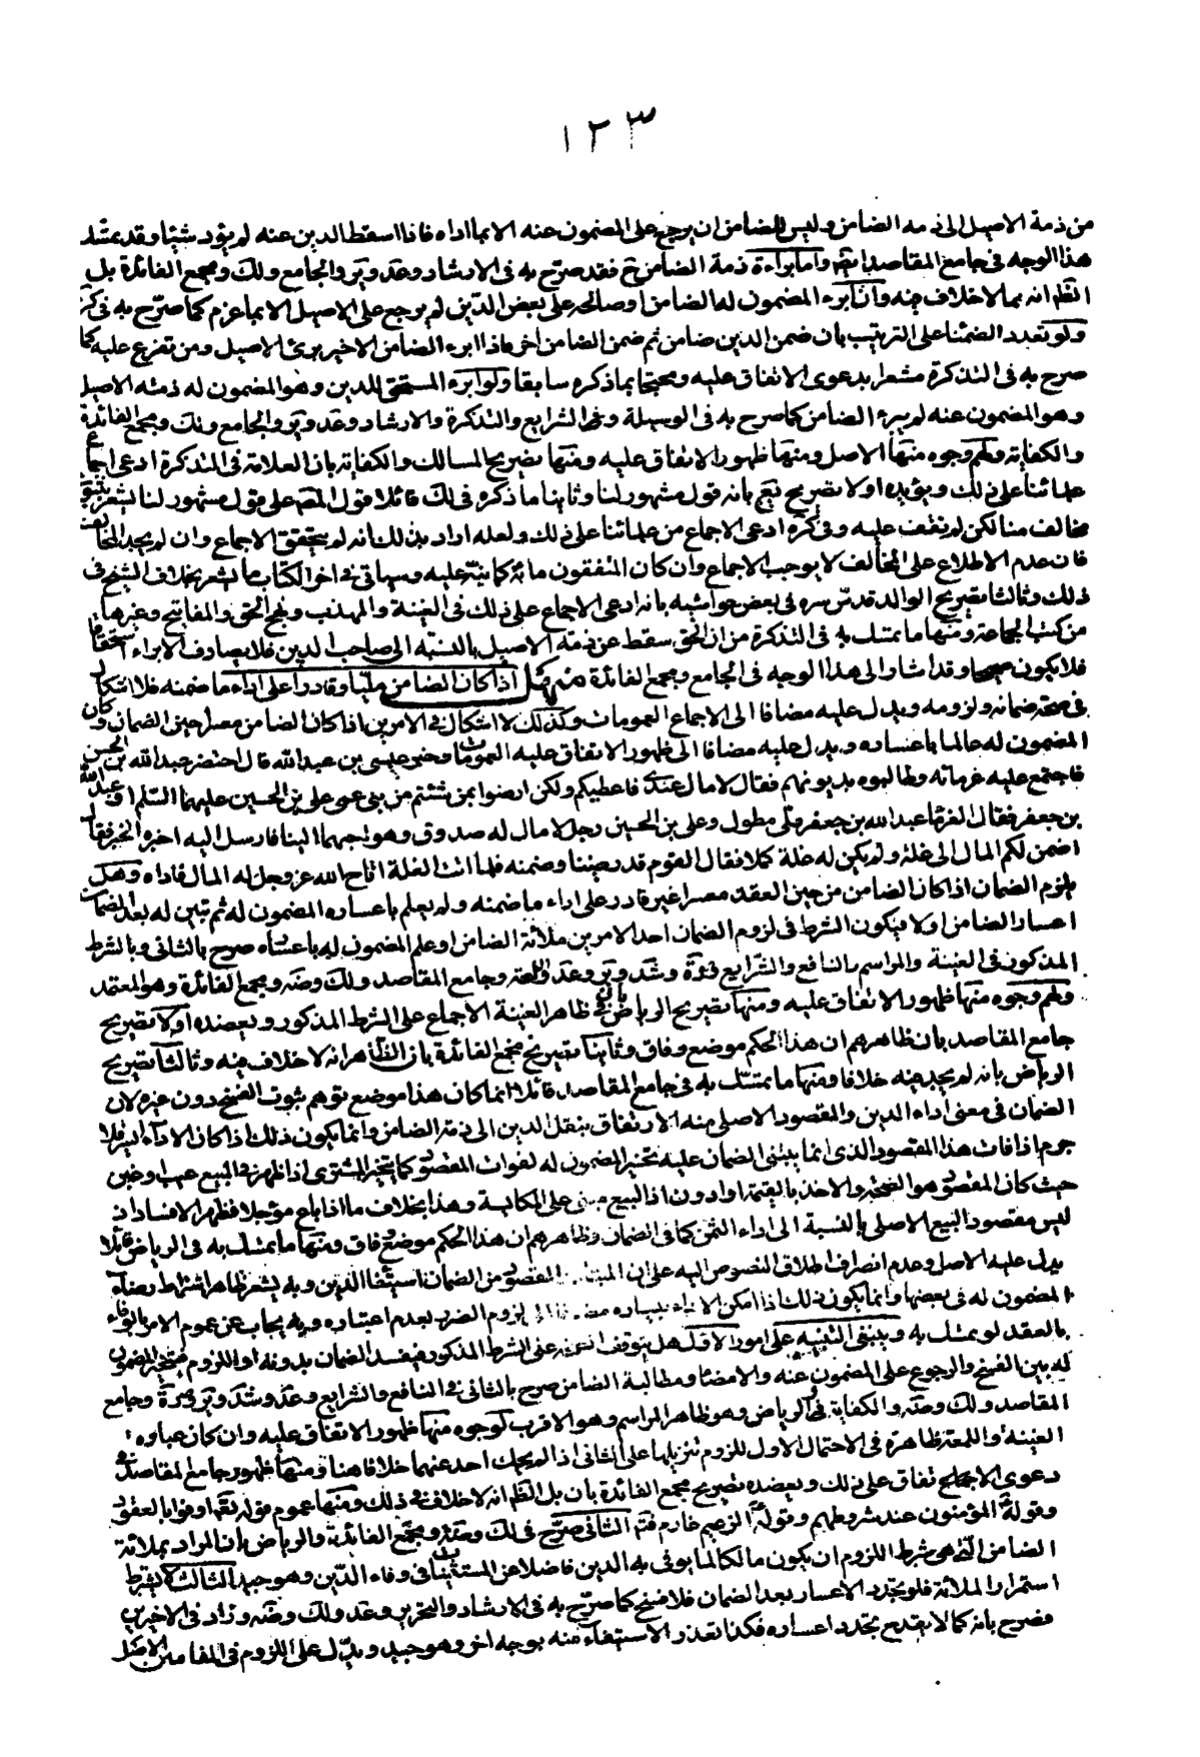 ١٢٣
من ذمة الاصيل الى ذمه الضامن وليس للضامن ان يرجع على المضمون عنه الا بما اداه فاذا اسقط الدين عنه لم يؤد شيئا وقد يمثل
هذا الوجه فى جامع المقاصد ايضا واما براءة ذمة الضامن فقد صرّح به فى الارشاد وعد وير والجامع ولك ومجمع الفائدة بل
الظم انه مما لا خلاف فيه واذا ابرء المضمون له الضامن او صالحه على بعض الدّين لم يرجع على الاصيل الا بما غرم كما صرّح به فى كرة
ولو تعدد الضمنا على الترتيب بان ضمن الدين ضامن ثم ضمن الضامن اخر فاذا ابرء الضامن الاخير برئ الاصيل ومن تفرع عليه كما
صرح به فى التذكرة مشعرا بدعوى الاتفاق عليه ومحتجا بما ذكره سابقا ولو ابرء المستحق للدين وهو المضمون له ذمته الاصيل
وهو المضمون عنه لم يبرء الضامن كما صرح به فى الوسيلة والشرايع والتذكرة والارشاد وعد وير والجامع ولك ومجمع الفائدة
والكفاية ولهم وجوه منها الاصل ومنها ظهور الاتفاق عليه ومنها تصريح المسالك والكفاية بان العلامة فى التذكرة ادعى اجماع
علمائنا على ذلك ويؤيده اولا تصريح بانه قول مشهور لنا وثانيا ما ذكره فى لك قائلا قول المصه على قول مشهور لنا يشعر بثبوت
مخالف منا لكن لم نقف عليه وفى كرة ادعى الاجماع من علمائنا على ذلك ولعله اراد بذلك انه لم يتحقق الاجماع وان لم يجد المخالف
فان عدم الاطلاع على المخالف لا يوجب الاجماع وان كان المتفقون مائة كما نبّه عليه وسياتى فى اخر الكتاب ما يشعر بخلاف الشيخ فى
ذلك وثالثا تصريح الوالد قدس سره فى بعض حواشيه بانه ادعى الاجماع على ذلك فى الغنية والمهذب ونهج الحق والمفاتيح وغيرها
من كتب الجماعة ومنها ما تمثل به فى التذكرة من ان الحق سقط عن ذمة الاصيل بالنسبه الى صاحب الدين فلا يصادف الابراء استحقاقا
فلا يكون صحيحا وقد اشار الى هذا الوجه فى الجامع ومجمع الفائدة منهل اذا كان الضامن مليا وقادرا على اداء ما ضمنه فلا اشكال
فى صحة ضمانه ولزومه ويدل عليه مضافا الى الاجماع العمومات وكذلك لا اشكال فى الامرين اذا كان الضامن معسرا حين الضمان وكان
المضمون له عالما باعساره ويدل عليه مضافا الى ظهور الاتفاق عليه العمومات وخبر عيسى بن عبدالله قال احتضر عبدالله بن الحسن
فاجتمع عليه غرمائه وطالبوه بديونهم فقال لا مال عندى فاعطيكم ولكن ارضوا بمن شئتم من بنى عمى على بن الحسين عليهما السّلم او عبدالله
بن جعفر فقال الغرماء عبدالله بن جعفر ملى مطول وعلى بن الحسين رجل لا مال له صدوق وهو احبهما الينا فارسل اليه اخبره الخبر فقال
اضمن لكم المال الى غلة ولم يكن له غلة كملا فقال القوم قد رضينا وضمنه فلما اتت الغلة اتاح الله عز وجل له المال فاداه وهل
يلزم الضمان اذا كان الضامن من حين العقد معسرا غير قادر على اداء ما ضمنه ولم يعلم باعساره المضمون له ثم تبين له بعد الضمان
اعسار الضامن اولا فيكون الشرط فى لزوم الضمان احد الامرين ملائة الضامن او علم المضمون له باعساره صرح بالثانى وبالشرط
المذكون فى الغنية والمراسم والنافع والشرايع وكرة وشد وير وعد واللمعة وجامع المقاصد ولك وضه ومجمع الفائدة وهو المعتمد
ولهم وجوه منها ظهور الاتفاق عليه ومنها تصريح الرياض بان ظاهر الغنية الاجماع على الشرط المذكور ويعضده اولا تصريح
جامع المقاصد بان ظاهرهم ان هذا الحكم موضع وفاق وثانيا تصريح مجمع الفائدة بان الظاهر انه لا خلاف فيه وثالثا تصريح
الرياض بانه لم يجد فيه خلافا ومنها ما تمسّك به فى جامع المقاصد قائلا انما كان هذا موضع توهم ثبوت الفسخ دون غيره لان
الضمان فى معنى اداء الدين والمقصود الاصلى منه الارتفاق بنقل الدين الى ذمة الضامن وانما يكون ذلك اذا كان الاداء اليسر فلا
جرم اذا فات هذا المقصود الذى انما يبتنى الضمان عليه تخير المضمون له لفوات المقصود كما يتخير المشترى اذا ظهر فى المبيع عيب او غبن
حيث كان المقصود هو الصحة والاخذ بالقيمة او ادون اذ البيع مبنى على المكايسة وهذا بخلاف ما اذا باع مؤجلا فظهر الافساد اذ
ليس مقصود البيع الاصلى بالنسبة الى اداء الثمن كما فى الضمان وظاهرهم ان هذا الحكم موضع وفاق ومنها ما تمسك به فى الرياض قائلا
يدل عليه الاصل وعدم انصراف اطلاق النصوص اليه على ان المقصود من الضمان استيفاء الدين وبه يشعر ظاهر اشتراط رضاء
المضمون له فى بعضها وانما يكون ذلك اذا امكن الاداء بيساره لزوم الضرر بعدم اعتباره وبه يجاب عن عموم الامر بالوفاء
بالعقد لو تمسك به وينبغى التنبيه على امور الاول هل يتوقف على الشرط المذكور فيفسد الضمان بدونه او اللزوم فيتخير المضمون
له بين الفسخ والرجوع على المضمون عنه والامضاء ومطالبة الضامن صرح بالثانى فى النافع والشرايع وعد وشد وير وكرة وجامع
المقاصد ولك وضه والكفاية والرياض وهو ظاهر المراسم وهو الاقرب لوجوه منها ظهور الاتفاق عليه وان كان عباره
الغنية واللمعة ظاهرة فى الاحتمال الاول للزوم تنزيلها على الثانى اذ لم يحك احد عنهما خلافا هنا ومنها ظهور جامع المقاصد فى
دعوى الاجماع تفاق على ذلك ويعضده تصريح مجمع الفائدة بان بل الظم انه لا خلاف فى ذلك ومنها عموم قوله تعم اوفوا بالعقود
وقوله المؤمنون عند شروطهم وقوله الزعيم غارم فتم الثانى صرّح فى لك وضه ومجمع الفائدة والرياض بان المراد بملائة
الضامن التى هى شرط اللزوم ان يكون مالكا لما يوفى به الدين فاضلا عن المستثنيات فى وفاء الدّين وهو جيد الثالث لا يشترط
استمرار الملائة فلو تجدد الاعسار بعد الضمان فلا فسخ كما صرّح به فى الارشاد والتحرير وعد ولك وضه وزاد فى الاخيرين
فصرح بانه كما لا يقدح تجدد اعساره فكذا تعذر الاستيفاء منه بوجه اخر وهو جيد ويدل على اللزوم فى المقامين الاصل